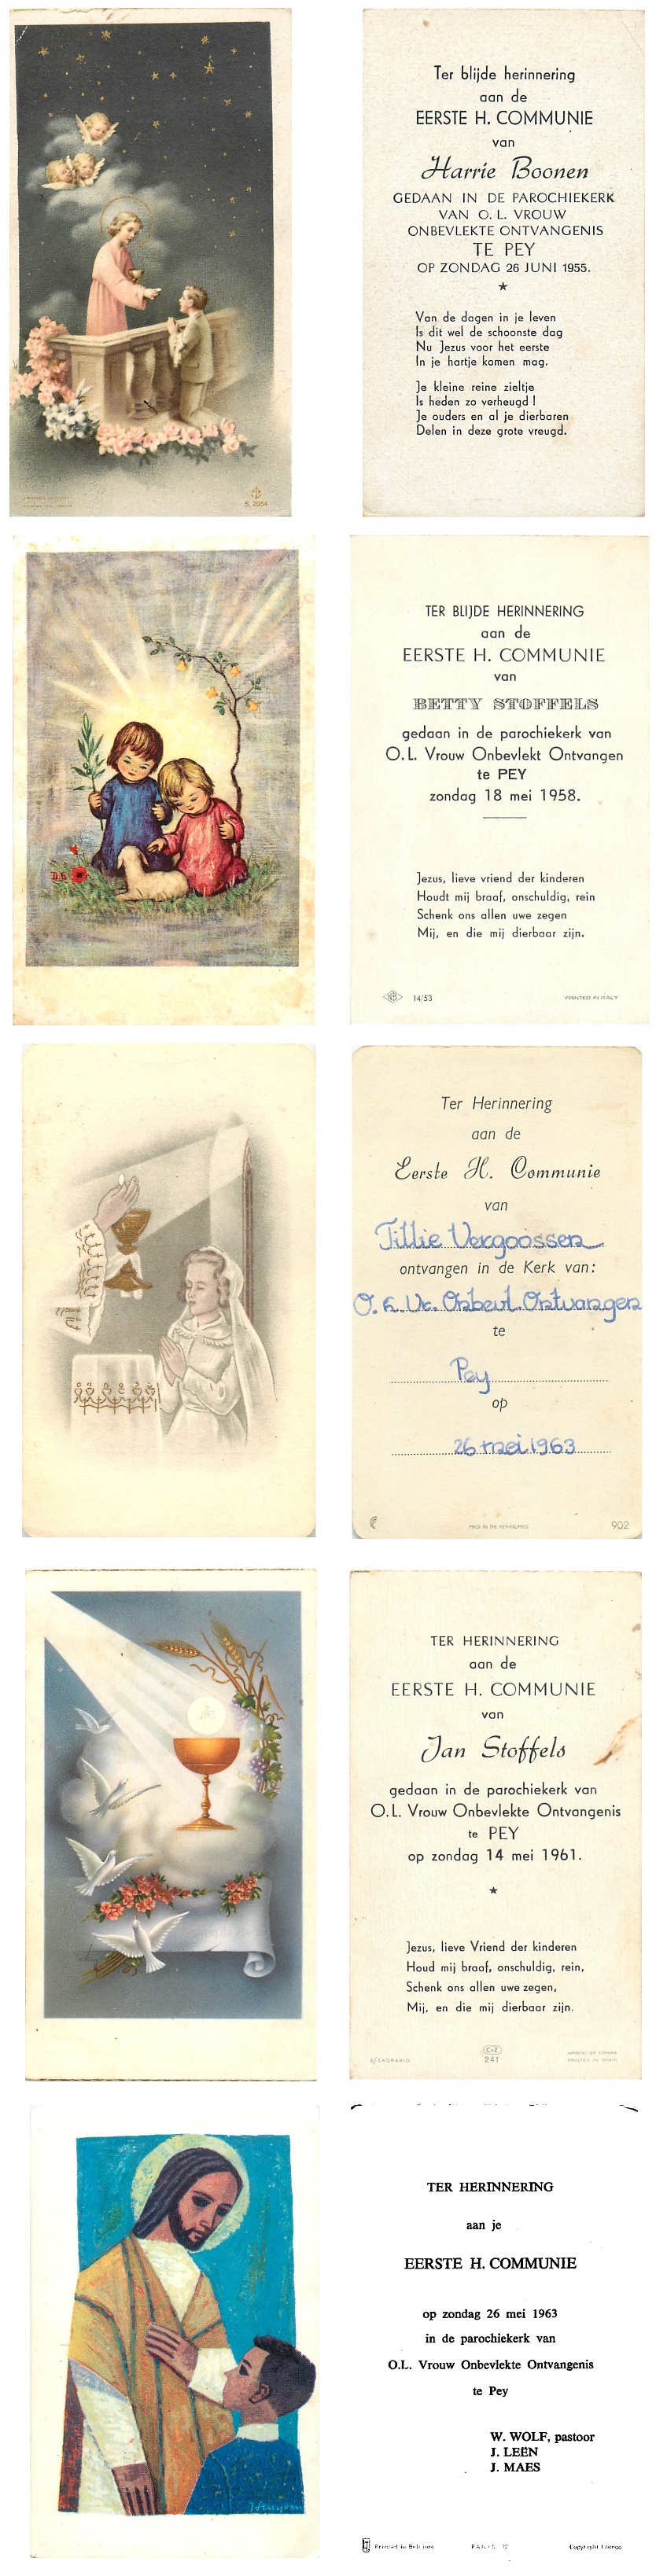 S. 2054
Ter blijde herinnering
aan de
EERSTE H. COMMUNIE
van
Harrie Boonen
GEDAAN IN DE PAROCHIEKERK
VAN O. L. VROUW
ONBEVLEKTE ONTVANGENIS
TE PEY
OP ZONDAG 26 JUNI 1955.
Van de dagen in je leven
Is dit wel de schoonste dag
Nu Jezus voor het eerste
In je hartje komen mag.
Je kleine reine zieltje
Is heden zo verheugd !
Je ouders en al je dierbaren
Delen in deze grote vreugd.
TER BLIJDE HERINNERING
aan de
EERSTE H. COMMUNIE
van
BETTY STOFFELS
gedaan in de parochiekerk van
O.L. Vrouw Onbevlekt Ontvangen
te PEY
zondag 18 mei 1958.
Jezus, lieve vriend der kinderen
Houdt mij braaf, onschuldig, rein
Schenk ons allen uwe zegen
Mij, en die mij dierbaar zijn.
NB 14/53 PRINTED IN ITALY
Ter Herinnering
aan de
Eerste H. Communie
van
Tillie Vergoossen
ontvangen in de Kerk van:
O. L. Vr. Onbevl. Ontvangen
te
Pey
op
26 mei 1963
MADE IN THE NETHERLANDS 902
TER HERINNERING
aan de
EERSTE H. COMMUNIE
van
Jan Stoffels
gedaan in de parochiekerk van
O.L. Vrouw Onbevlekte Ontvangenis
te PEY
op zondag 14 mei 1961.
Jezus, lieve Vriend der kinderen
Houd mij braaf, onschuldig, rein,
Schenk ons allen uwe zegen,
Mij, en die mij dierbaar zijn.
C.Z
241
PRINTED IN SPAIN
TER HERINNERING
aan je
EERSTE H. COMMUNIE
op zondag 26 mei 1963
in de parochiekerk van
O.L. Vrouw Onbevlekte Ontvangenis
te Pey
W. WOLF, pastoor
J. LEËN
J. MAES
Printed in Belgium Copyright